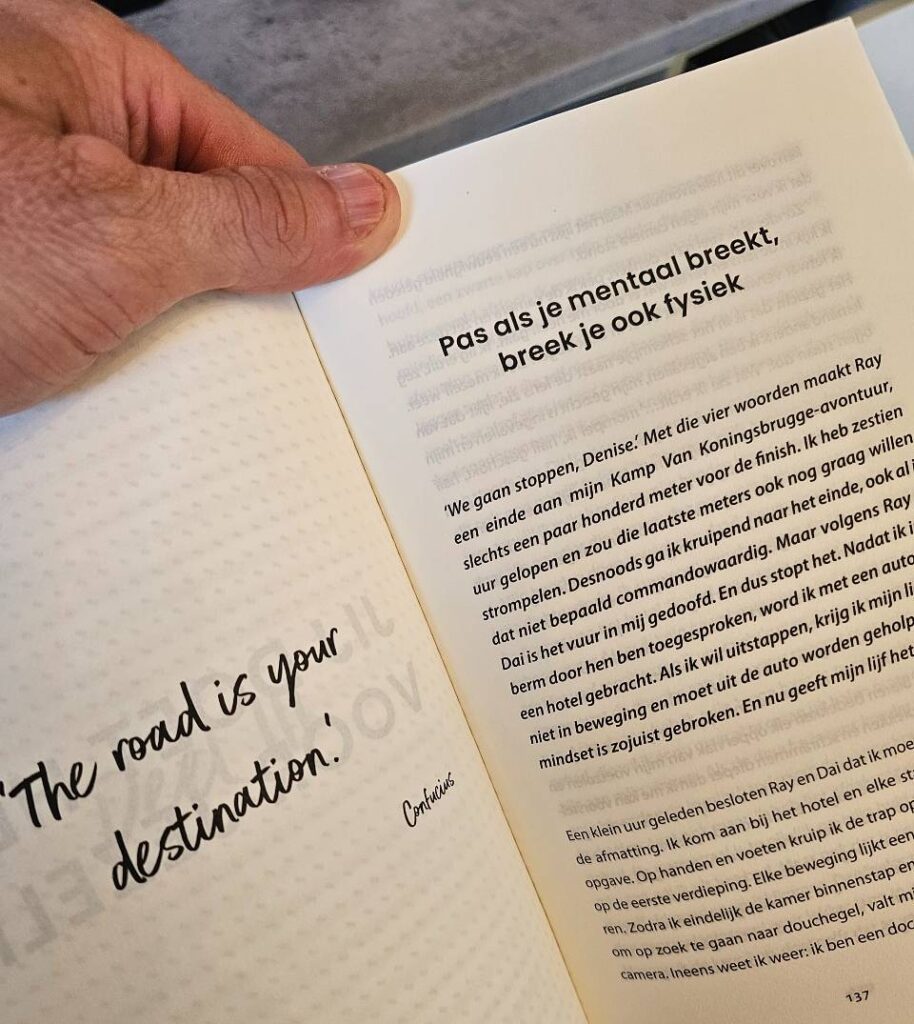 'The road is your
destination.'
Confucius
Pas als je mentaal breekt,
breek je ook fysiek
'We gaan stoppen, Denise.' Met die vier woorden maakt Ray
een einde aan mijn Kamp Van Koningsbrugge-avontuur,
slechts een paar honderd meter voor de finish. Ik heb zestien
uur gelopen en zou die laatste meters ook nog graag willen
strompelen. Desnoods ga ik kruipend naar het einde, ook al
dat niet bepaald commandowaardig. Maar volgens Ray
Dai is het vuur in mij gedoofd. En dus stopt het. Nadat ik
berm door hen ben toegesproken, word ik met een auto
een hotel gebracht. Als ik wil uitstappen, krijg ik mijn
niet in beweging en moet uit de auto worden
mindset is zojuist gebroken. En nu geeft mijn lijf het
Een klein uur geleden besloten Ray en Dai dat ik
de afmatting. Ik kom aan bij het hotel en elke
opgave. Op handen en voeten kruip ik de trap op
op de eerste verdieping. Elke beweging lijkt een
ren. Zodra ik eindelijk de kamer binnenstap en
om op zoek te gaan naar douchegel, valt
camera. Ineens weet ik weer: ik ben een
137